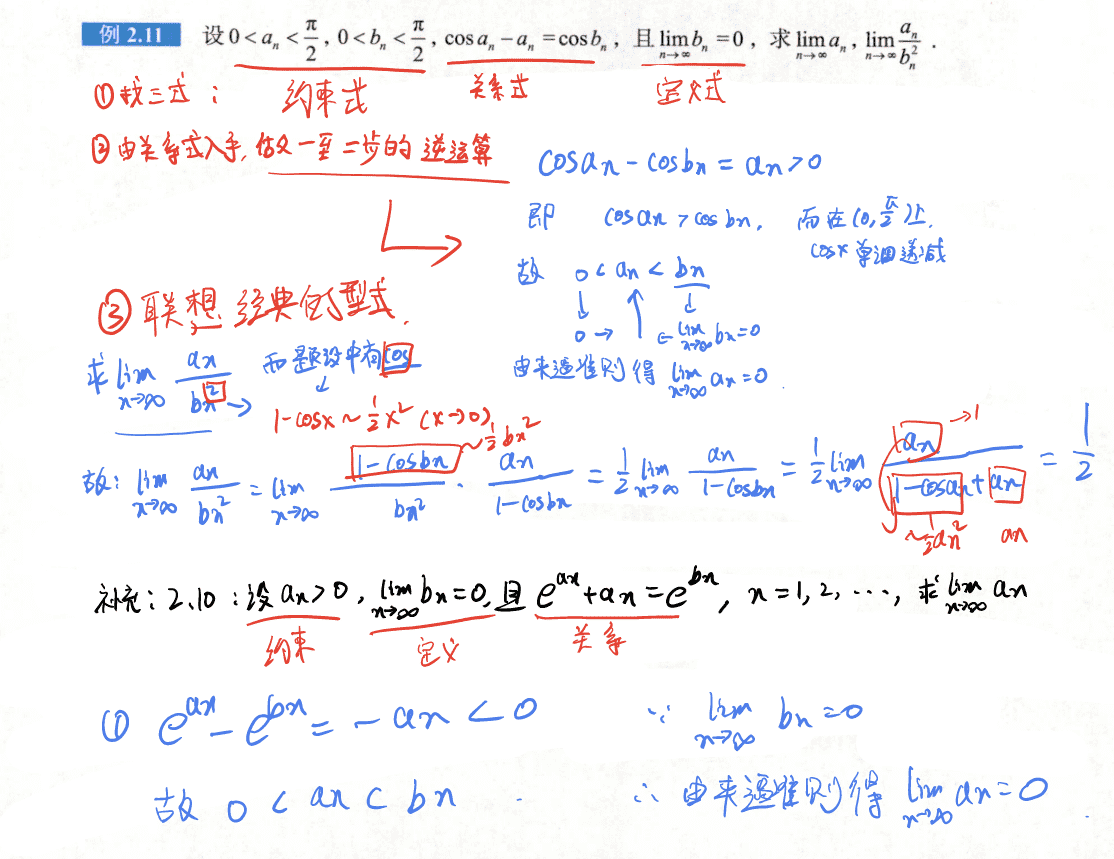 例 2.11 设0<aₙ<π/2, 0<bₙ<π/2, cos aₙ − aₙ = cos bₙ, 且 lim_{n→∞} bₙ = 0, 求 lim_{n→∞} aₙ, lim_{n→∞} aₙ/bₙ².
①找三式: 约束式 关系式 定义式
②由关系式入手,做一至二步的 逆运算
cos aₙ − cos bₙ = aₙ > 0
即 cos aₙ > cos bₙ, 而在(0, π/2)上,
cosx 单调递减
故 0 < aₙ < bₙ
0 → ← lim_{n→∞} bₙ = 0
由夹逼准则得 lim_{n→∞} aₙ = 0
③联想 经典的型式.
求 lim_{n→∞} aₙ/bₙ² 而题设中有cos
→ 1−cosx ~ ½x² (x→0)
~½bₙ² →1
故: lim_{n→∞} aₙ/bₙ² = lim_{n→∞} (1−cosbₙ)/bₙ² · aₙ/(1−cosbₙ) = ½ lim_{n→∞} aₙ/(1−cosbₙ) = ½ lim_{n→∞} aₙ/(1−cosaₙ+aₙ) = ½
~½aₙ² aₙ
补充: 2.10: 设 aₙ>0, lim_{n→∞} bₙ=0, 且 e^{aₙ}+aₙ=e^{bₙ}, n=1,2,···, 求 lim_{n→∞} aₙ
约束 定义 关系
① e^{aₙ} − e^{bₙ} = −aₙ < 0 ∵ lim_{n→∞} bₙ=0
故 0 < aₙ < bₙ ∴ 由夹逼准则得 lim_{n→∞} aₙ=0